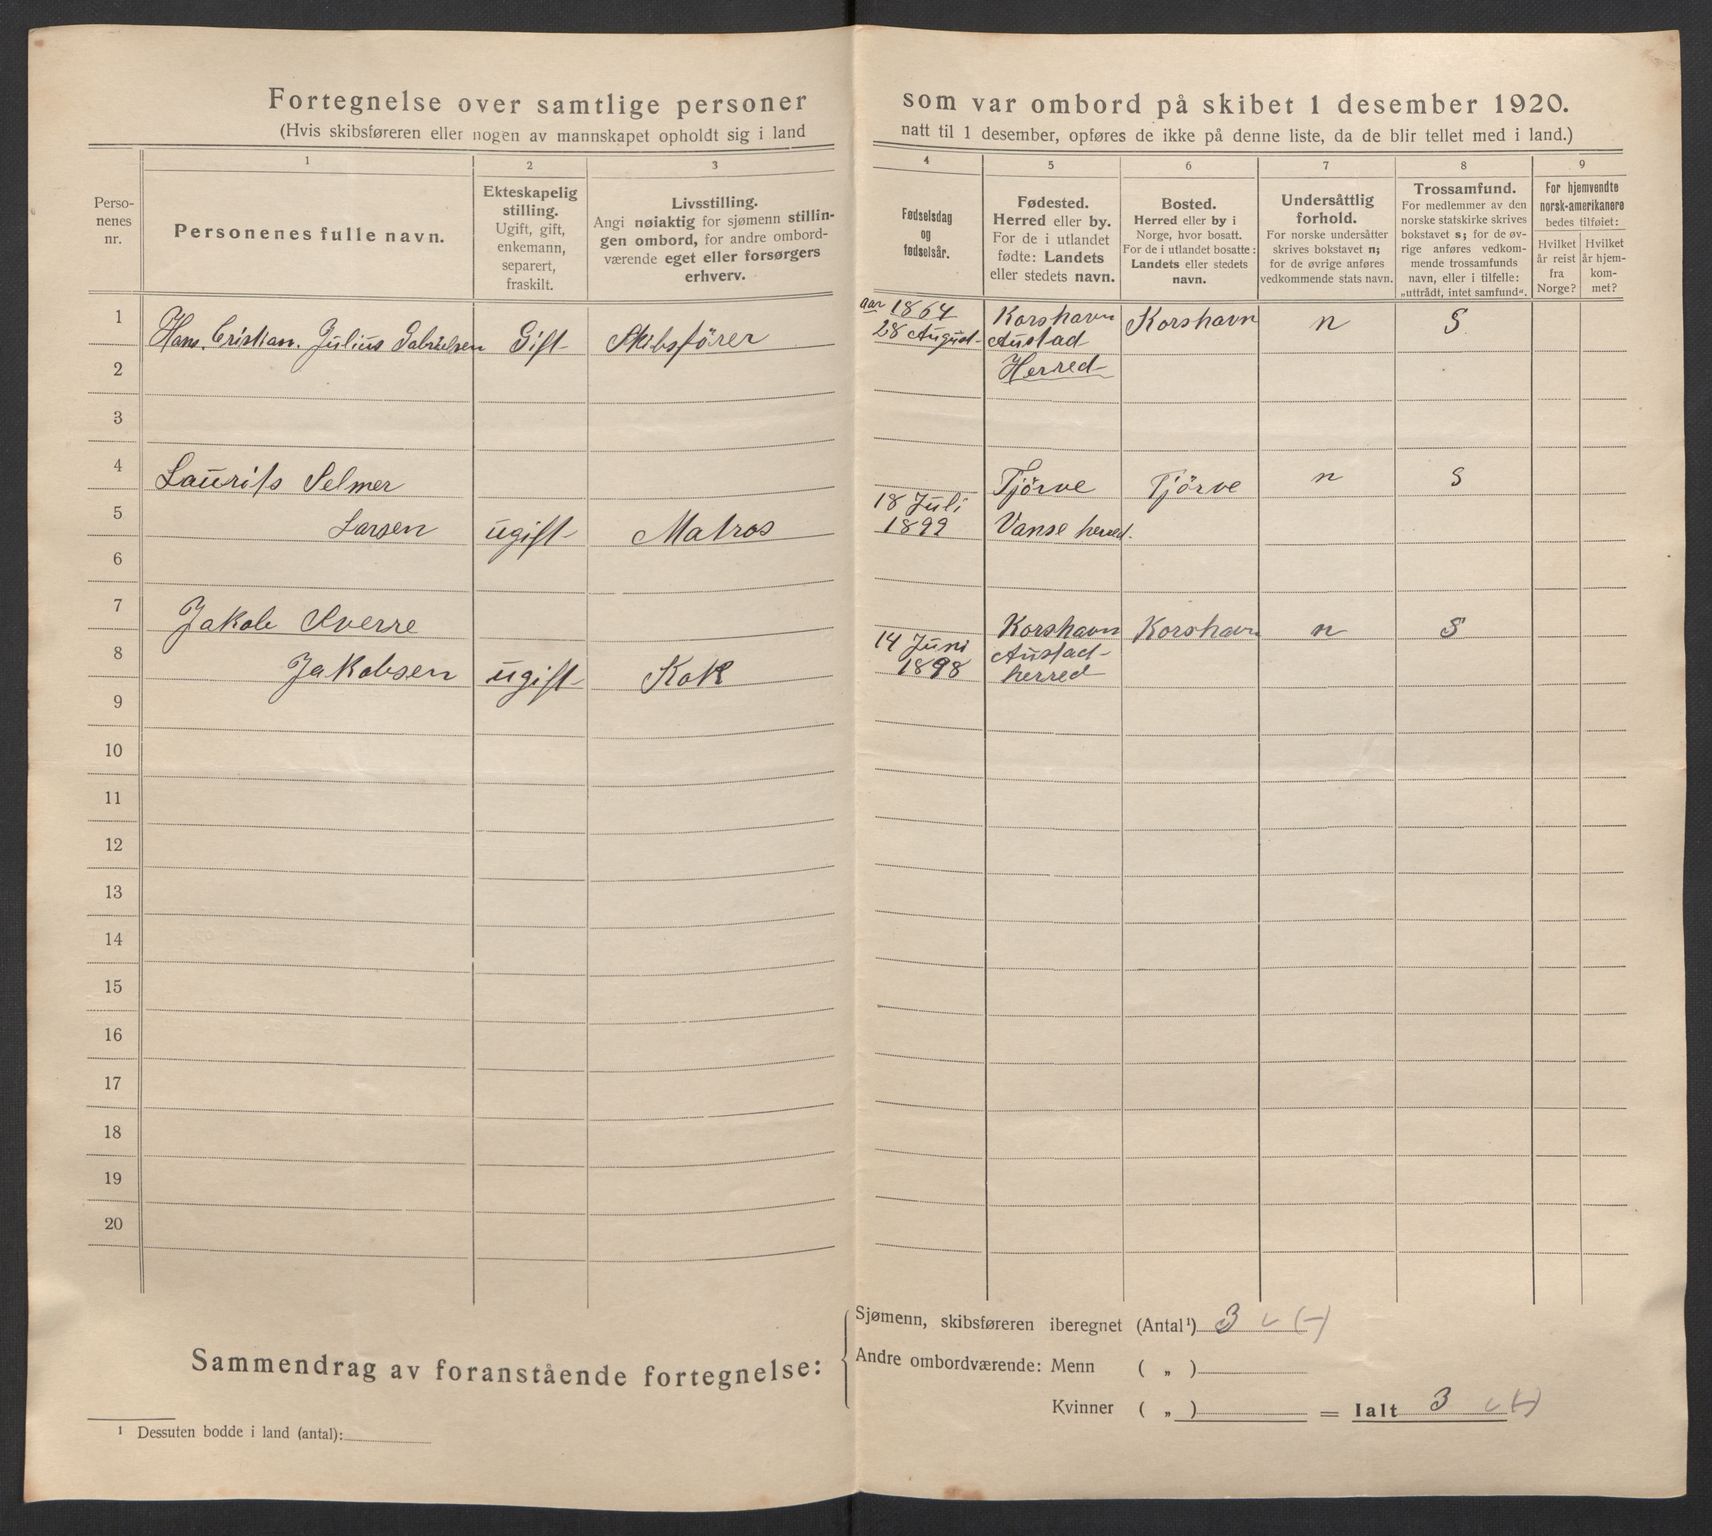 Fortegnelse over samtlige personer som var ombord på skibet 1 desember 1920.
(Hvis skibsføreren eller nogen av mannskapet opholdt sig i land natt til 1 desember, opføres de ikke på denne liste, da de blir tellet med i land.)
Perso-
nenes
nr.
1
Personenes fulle navn.
2
Ekteskapelig
stilling.
Ugift, gift,
enkemann,
separert,
fraskilt.
3
Livsstilling.
Angi nøiaktig for sjømenn stillin-
gen ombord, for andre ombord-
værende eget eller forsørgers
erhverv.
4
Fødselsdag
og
fødselsår.
5
Fødested.
Herred eller by.
For de i utlandet
fødte: Landets
eller stedets navn.
6
Bosted.
Herred eller by i
Norge, hvor bosatt.
For de i utlandet bosatte:
Landets eller stedets
navn.
7
Undersåttlig
forhold.
For norske undersåtter
skrives bokstavet n;
for de øvrige anføres
vedkommende stats navn.
8
Trossamfund.
For medlemmer av den
norske statskirke skrives
bokstavet s; for de øv-
rige anføres vedkom-
mende trossamfunds
navn, eller i tilfelle:
„uttrådt, intet samfund“.
9
For hjemvendte
norsk-amerikanere
bedes tilføiet:
Hvilket
år reist
fra
Norge?
Hvilket
år hjem-
kom-
met?
1 Hans. Cristian. Julius Gabrielsen Gift Skibsförer aar 1864 Korshavn Korshavn n S
28 August Austad
2 Herred
3
4 Laurits Selmer Tjörve Tjörve n S
18 Juli
5 Larsen ugift Matros 1899 Vanse herred.
6
7 Jakob Sverre Korshavn Korshavn n S
14 Juni Austad-
8 Jakobsen ugift Kok 1898 herred
9
10
11
12
13
14
15
16
17
18
19
20
Sammendrag av foranstående fortegnelse:
Sjømenn, skibsføreren iberegnet (Antal¹) 3 v (-)
Andre ombordværende: Menn ( „ )
Kvinner ( „ ) = Ialt 3 v (-)
¹ Dessuten bodde i land (antal):